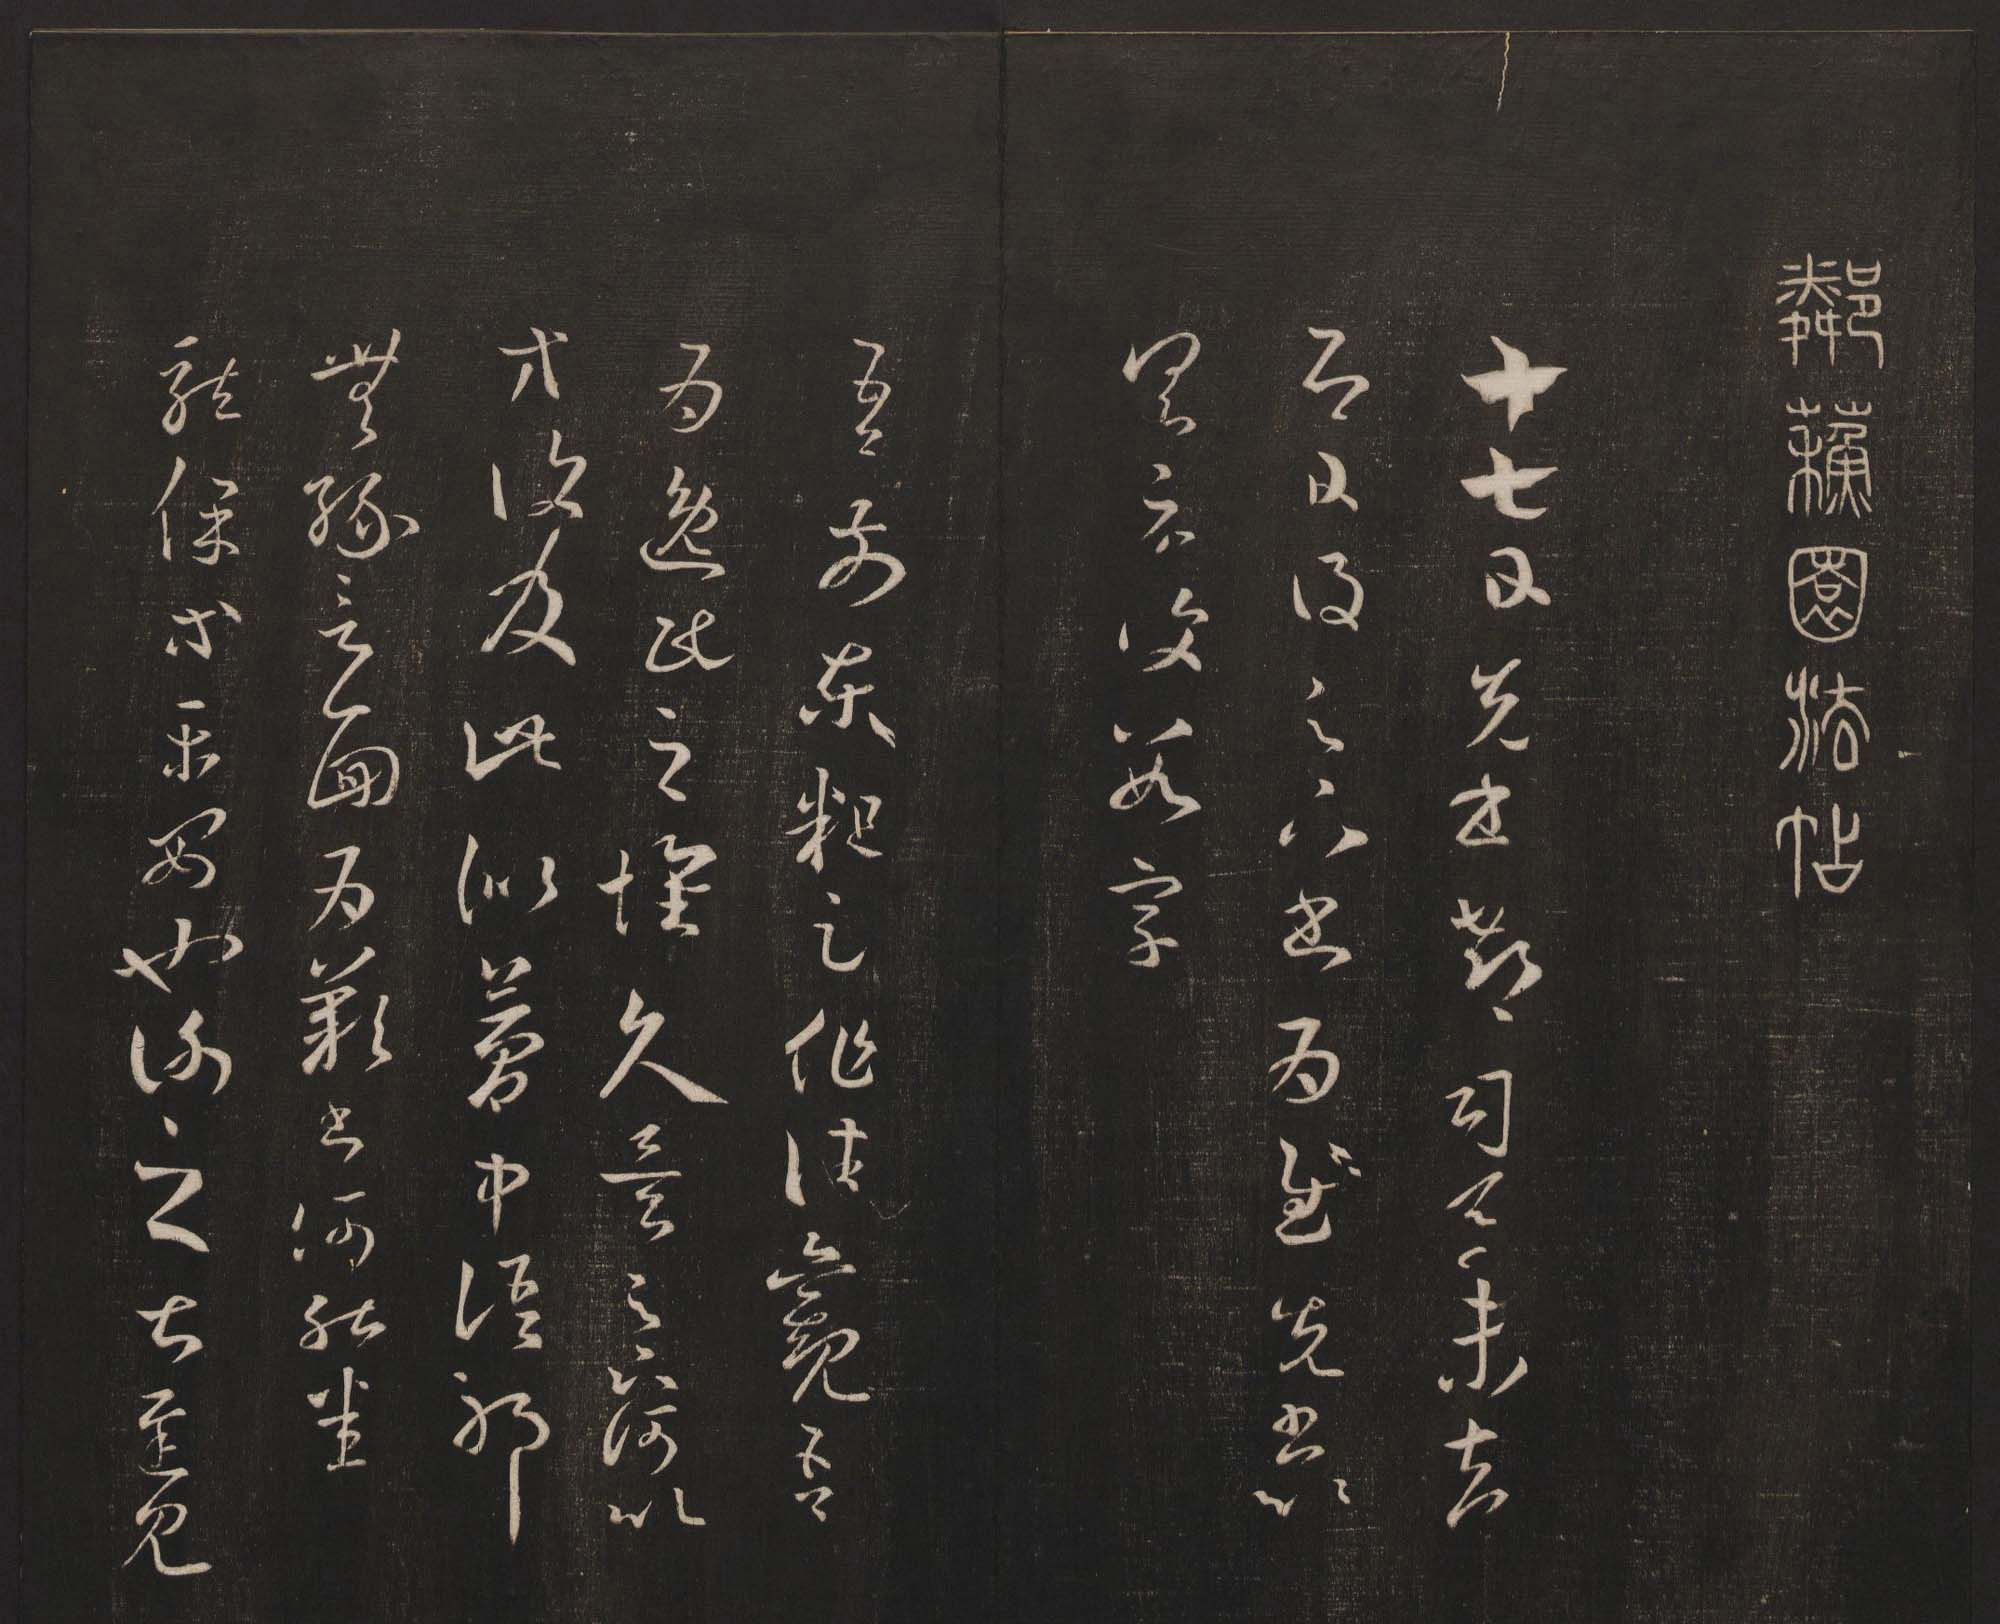 鄰蘇園法帖
十七日先書郗司馬未去
即日得足下書為慰先書以
具示復數字
吾前東粗足作佳觀吾
為逸民之懷久矣足下何以
方復及此似夢中語耶
無緣言面為歎書何能悉
龍保等平安也謝之甚遲見